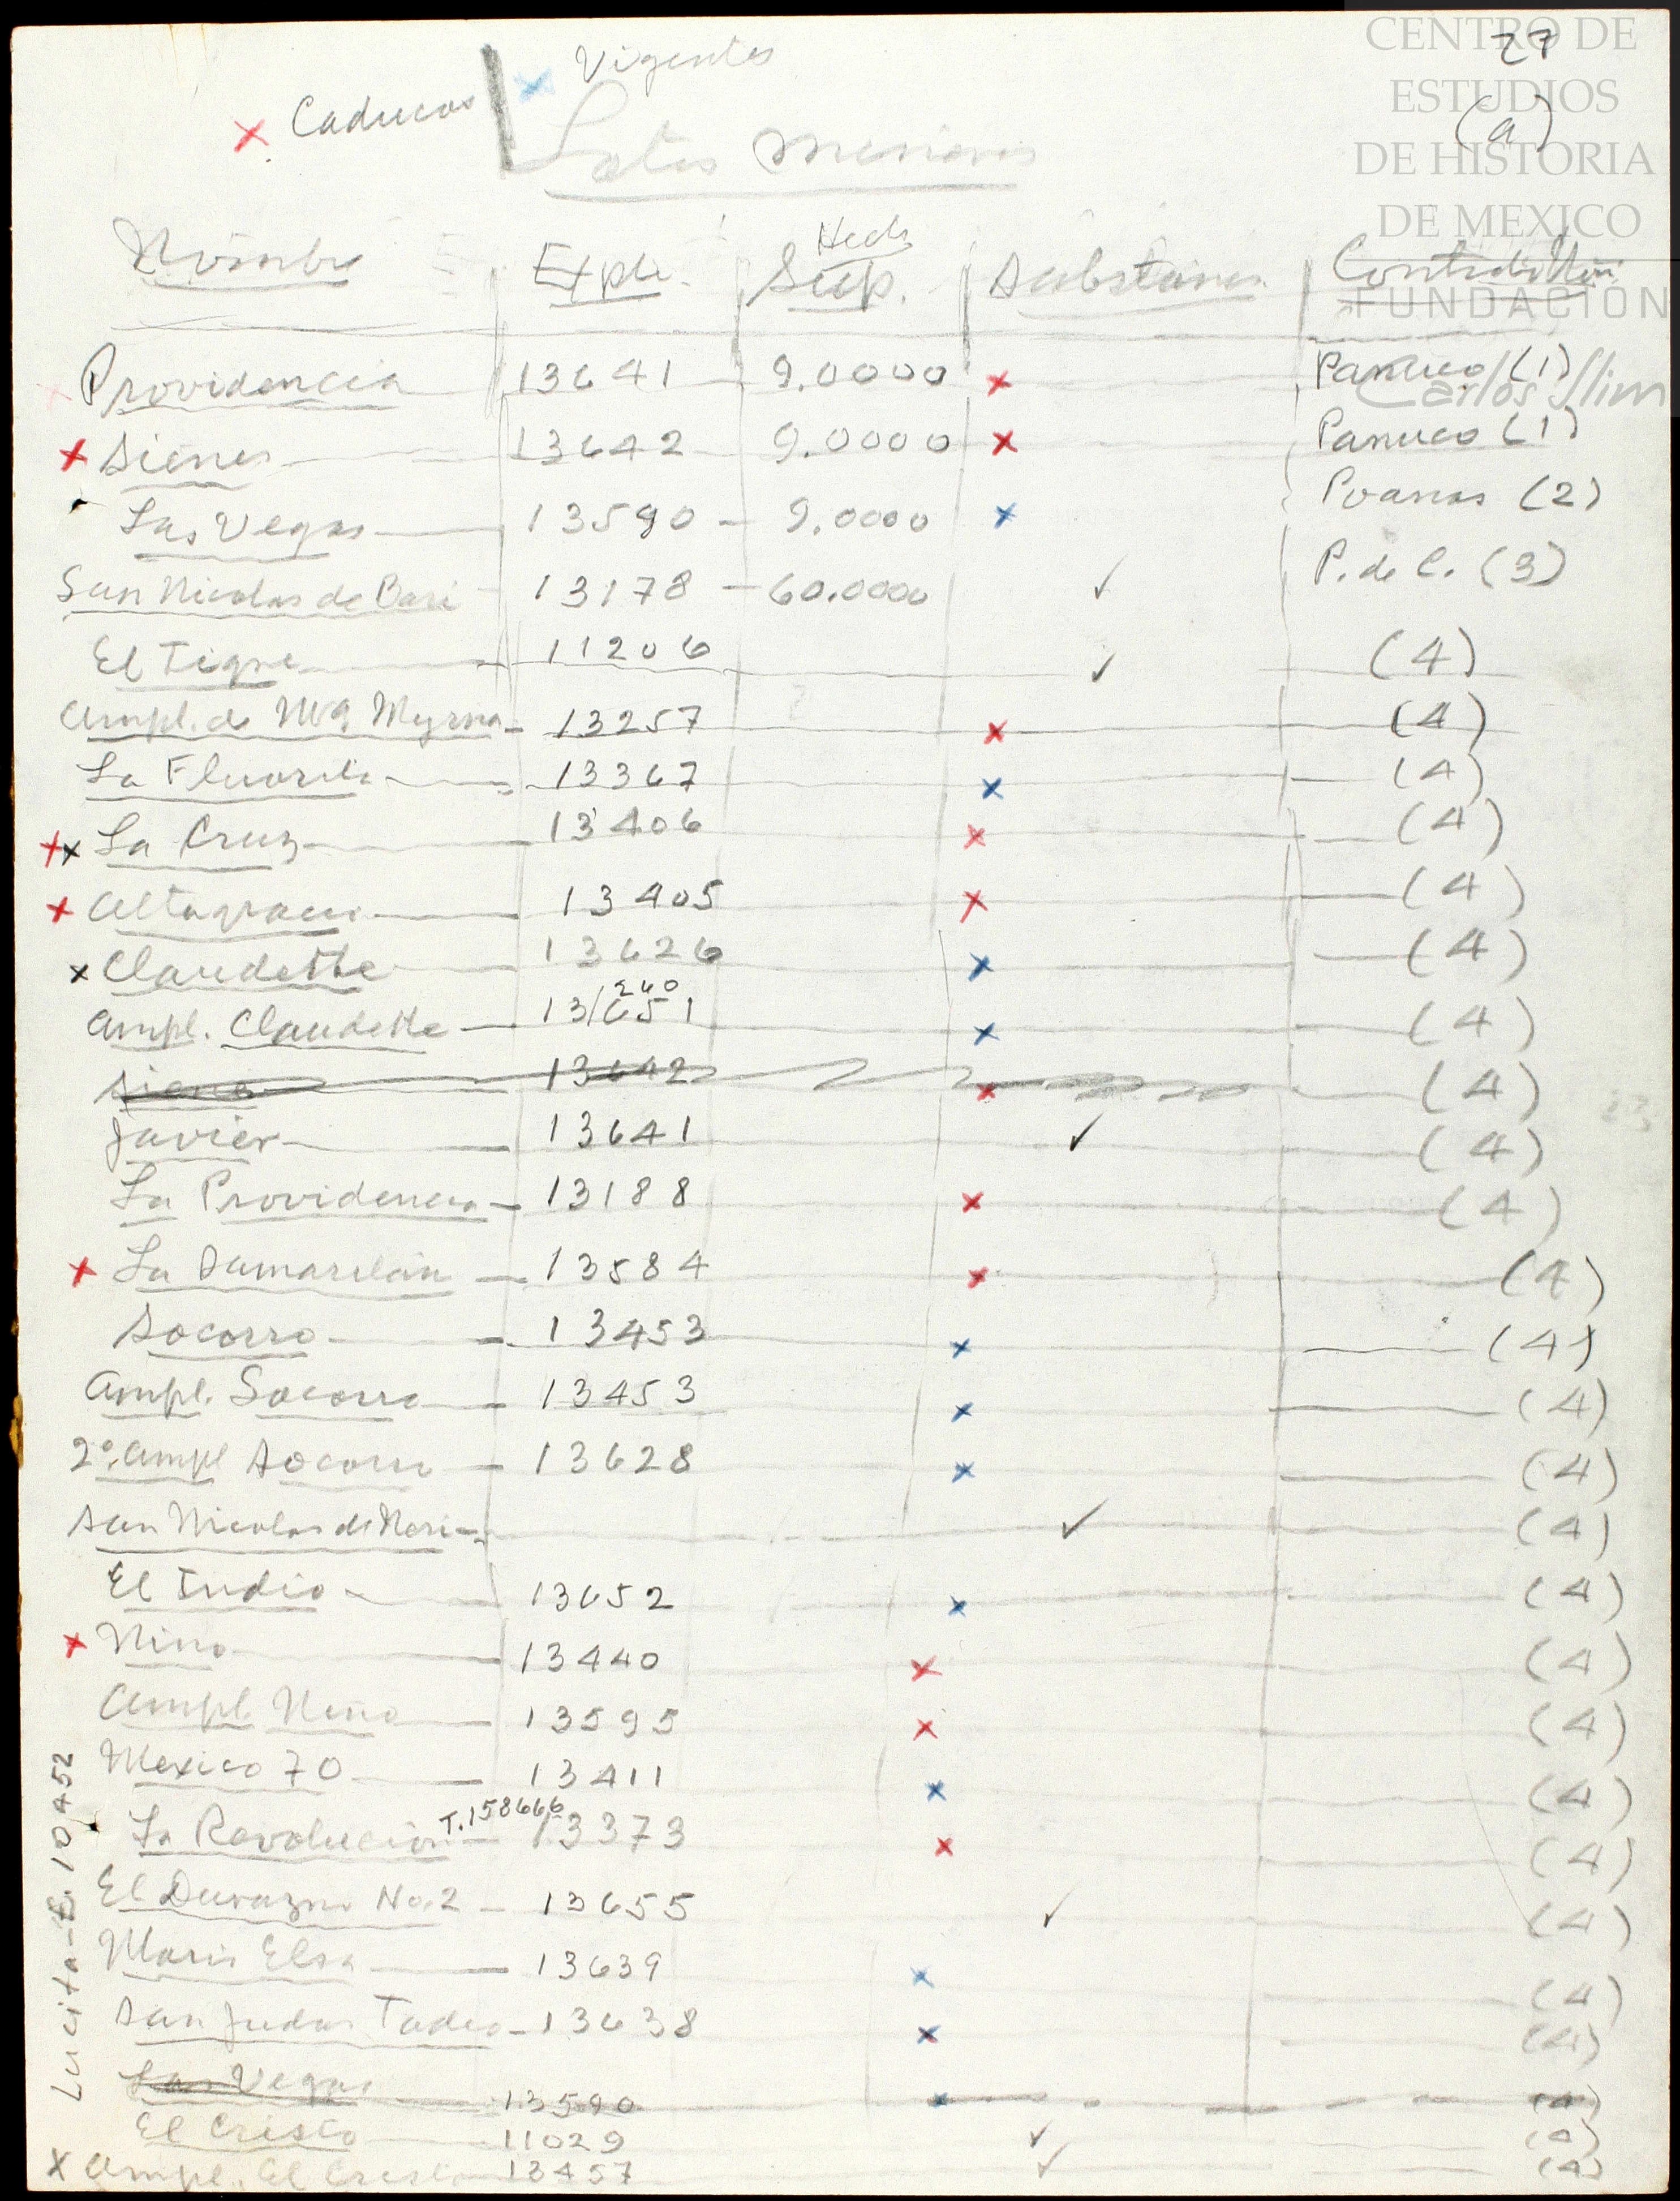 CENTRO DE
ESTUDIOS
DE HISTORIA
DE MEXICO
FUNDACIÓN
Carlos Slim
27
(a)
x Caducos | x Vigentes
Lotes
Nombre Expte. Hects Sup. Contribución
Providencia 13641 9.0000 x Panuco (1)
x Siene 13642 9.0000 x Panuco (1)
Las Vegas 13590 - 9.0000 x Poanas (2)
San Nicolas de Bari 13178 - 60.0000 ✓ P. de C. (3)
El Tigre 11206 ✓ (4)
Ampl. de Myrna - 13257 x (4)
La Fluorita 13367 x (4)
xx La Cruz 13406 x (4)
x Altagracia 13405 x (4)
x Claudette 13626 x (4)
Ampl. Claudette 13/651 240 x (4)
Siena 13642 x (4)
Javier 13641 ✓ (4)
La Providencia - 13188 x (4)
x La 13584 x (4)
Socorro 13453 x (4)
Ampl. Socorro 13453 x (4)
2a. Ampl Socorro 13628 x (4)
San Nicolas de ✓ (4)
El Indio 13652 x (4)
x Nino 13440 x (4)
Ampl. Nino 13595 x (4)
Mexico 70 13411 x (4)
La Revolucion T.158666 13373 x (4)
El Durazno No.2 - 13655 ✓ (4)
Maria Elsa 13639 x (4)
San Judas Tadeo - 13638 x (4)
Las Vegas 13590 x (4)
El Cristo 11029 ✓ (4)
x Ampl. El Cristo 13457 ✓ (4)
Lucita - E. 10452